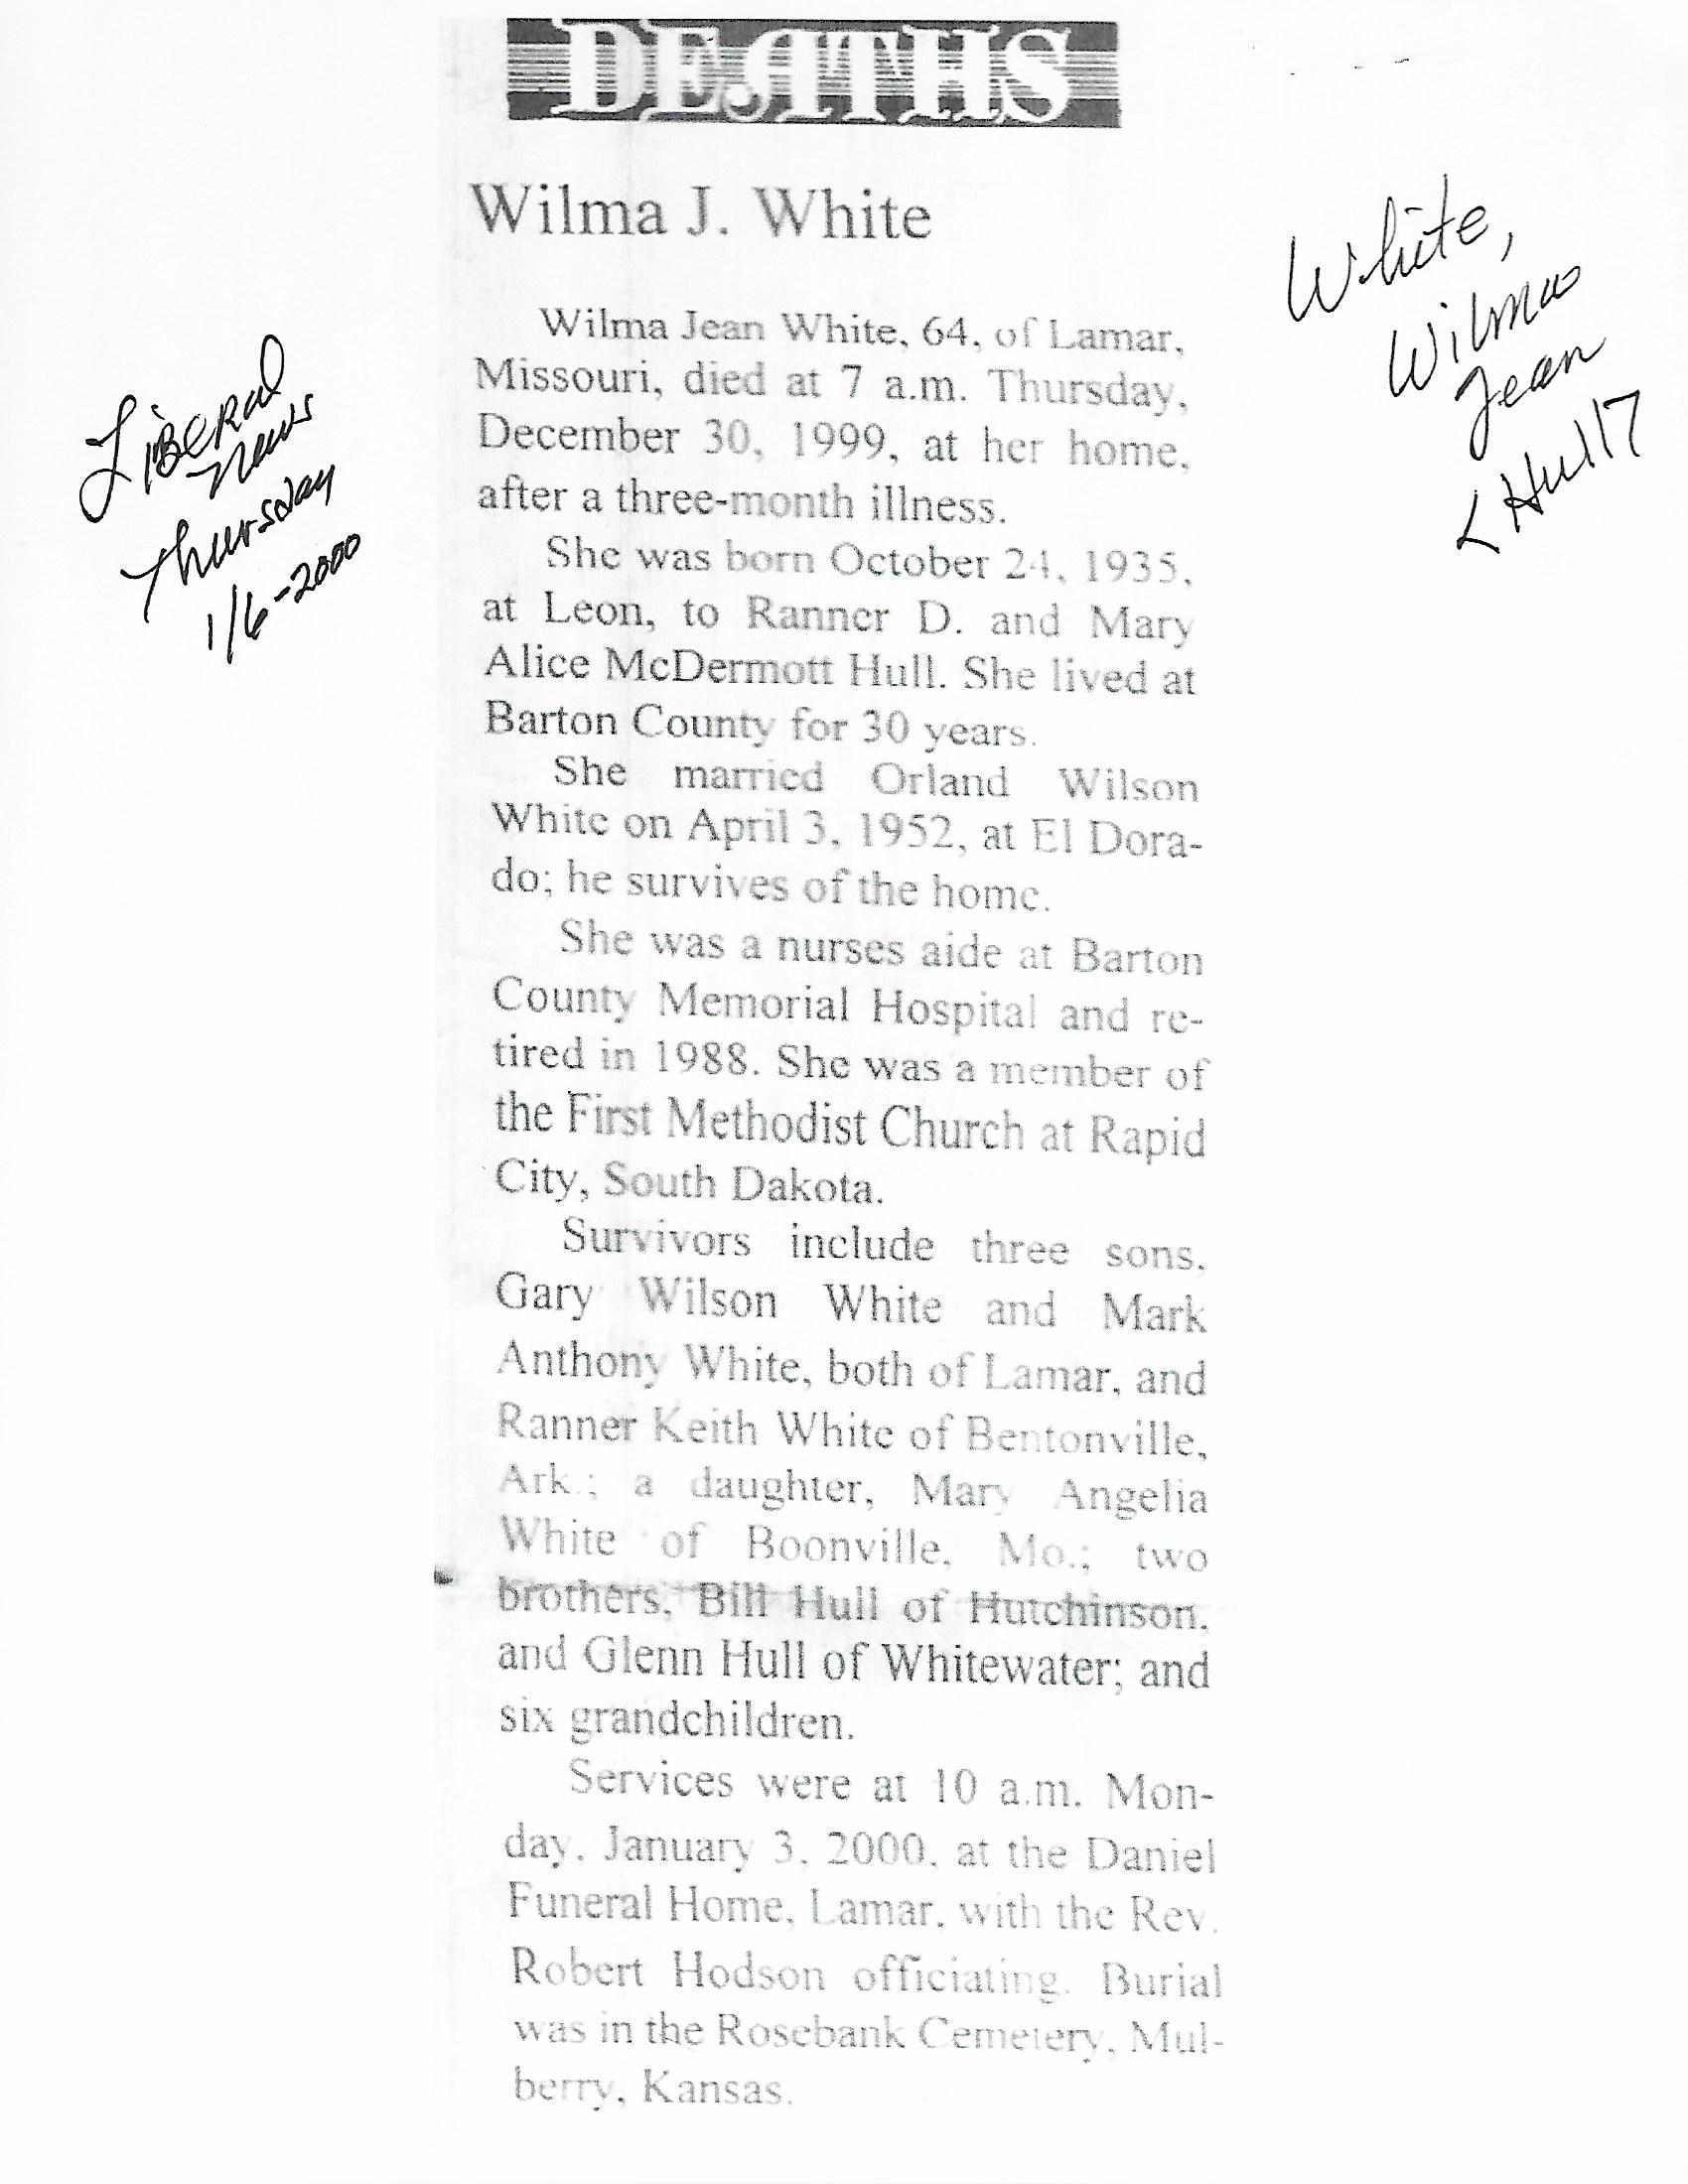 DEATHS
Wilma J. White
Wilma Jean White, 64, of Lamar,
Missouri, died at 7 a.m. Thursday,
December 30, 1999, at her home,
after a three-month illness.
She was born October 24, 1935,
at Leon, to Ranner D. and Mary
Alice McDermott Hull. She lived at
Barton County for 30 years.
She married Orland Wilson
White on April 3, 1952, at El Dora-
do; he survives of the home.
She was a nurses aide at Barton
County Memorial Hospital and re-
tired in 1988. She was a member of
the First Methodist Church at Rapid
City, South Dakota.
Survivors include three sons,
Gary Wilson White and Mark
Anthony White, both of Lamar, and
Ranner Keith White of Bentonville,
Ark.; a daughter, Mary Angelia
White of Boonville, Mo.; two
brothers, Bill Hull of Hutchinson,
and Glenn Hull of Whitewater; and
six grandchildren.
Services were at 10 a.m. Mon-
day, January 3, 2000, at the Daniel
Funeral Home, Lamar, with the Rev.
Robert Hodson officiating. Burial
was in the Rosebank Cemetery, Mul-
berry, Kansas.
Liberal
News
Thursday
1/6-2000
White,
Wilma
Jean
< Hull 7